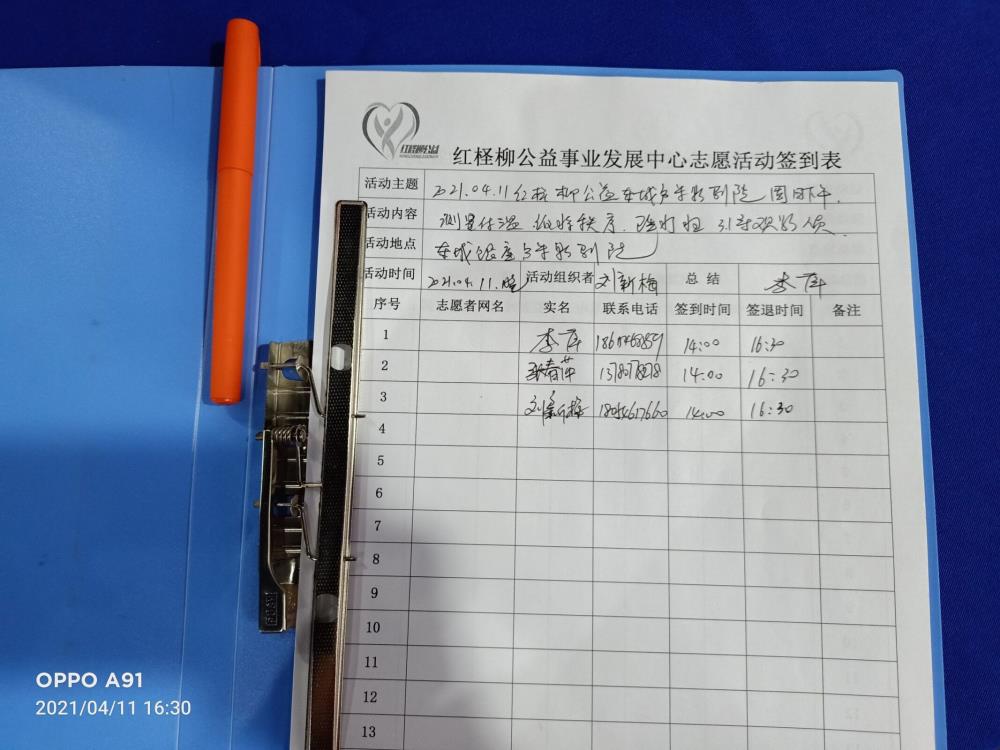 红柽柳公益
红柽柳公益事业发展中心志愿活动签到表
活动主题 2021.04.11红柽柳公益东城 影剧院 周日下午.
活动内容 测量体温 维持秩序 引导观影人员
活动地点 东城 影剧院
活动时间 2021.04.11. 活动组织者 刘新梅 总结 李萍
序号 志愿者网名 实名 联系电话 签到时间 签退时间 备注
1 李萍 14:00 16:30
2 张春萍 14:00 16:30
3 刘新梅 18054627660 14:00 16:30
4
5
6
7
8
9
10
11
12
13
OPPO A91
2021/04/11 16:30